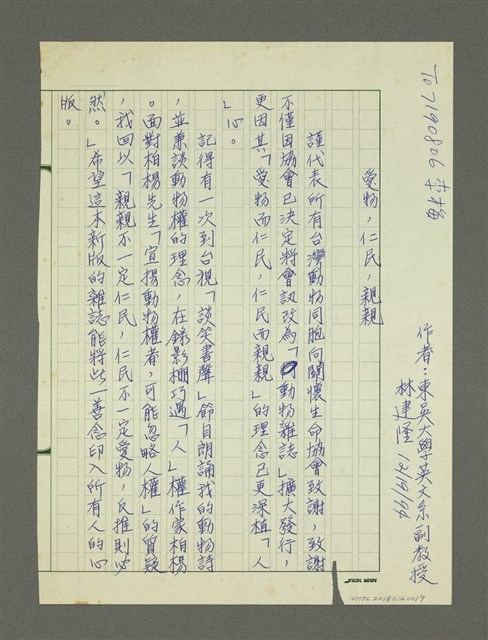 To 7190806 李梅
作者：東吳大學英文系副教授
林建隆 12/9/94
愛物，仁民，親親
謹代表所有台灣動物同胞向關懷生命協會致謝，致謝
不僅因協會已決定將會訊改為「動物雜誌」擴大發行，
更因其「愛物而仁民，仁民而親親」的理念已更深植「人
」心。
記得有一次到台視「談笑書聲」節目朗誦我的動物詩
，並兼談動物權的理念，在錄影棚巧遇「人」權作家柏楊
。面對柏楊先生「宣揚動物權者，可能忽略人權」的質疑
，我回以「親親不一定仁民，仁民不一定愛物，反推則必
然。」希望這本新版的雜誌能將此一善念印入所有人的心
版。
NMTL20180160019